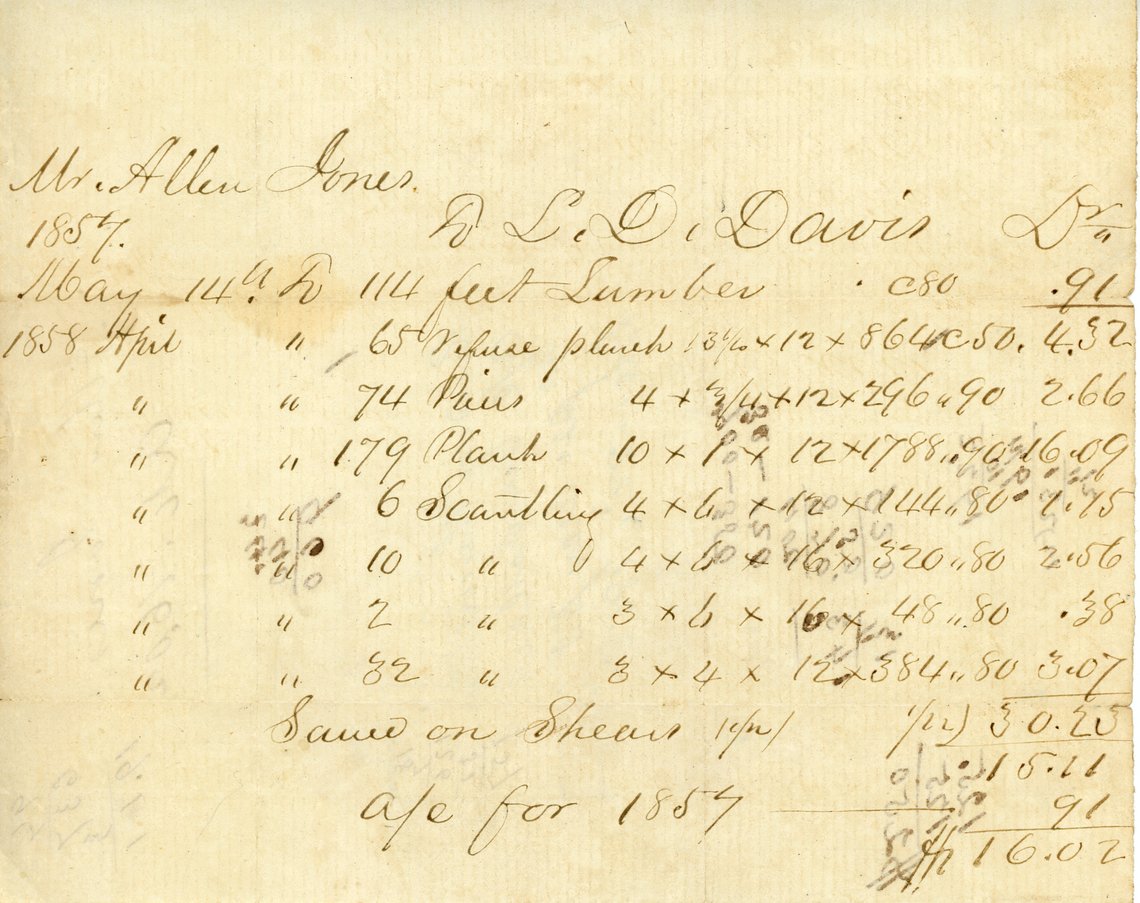 Mr. Allen Jones.
1857. To L. D. Davis Dr
May 14th. To 114 feet Lumber . c80 .91
1858 April " 65 refuse plank 13 1/10 x 12 x 864 c50. 4.32
" " 74 Pieces 4 x 3/4 x 12 x 296 " 90 2.66
" " 179 Plank 10 x 1 x 12 x 1788 " 90 16.09
" " 6 Scantling 4 x 6 x 12 x 144 " 80 1.15
" " 10 " 4 x 6 x 16 x 320 " 80 2.56
" " 2 " 3 x 6 x 16 x 48 " 80 .38
" " 32 " 3 x 4 x 12 x 384 " 80 3.07
Sawed on Shears (1/2) 1/2) 30.23
15.11
a/c for 1857 91
$16.02